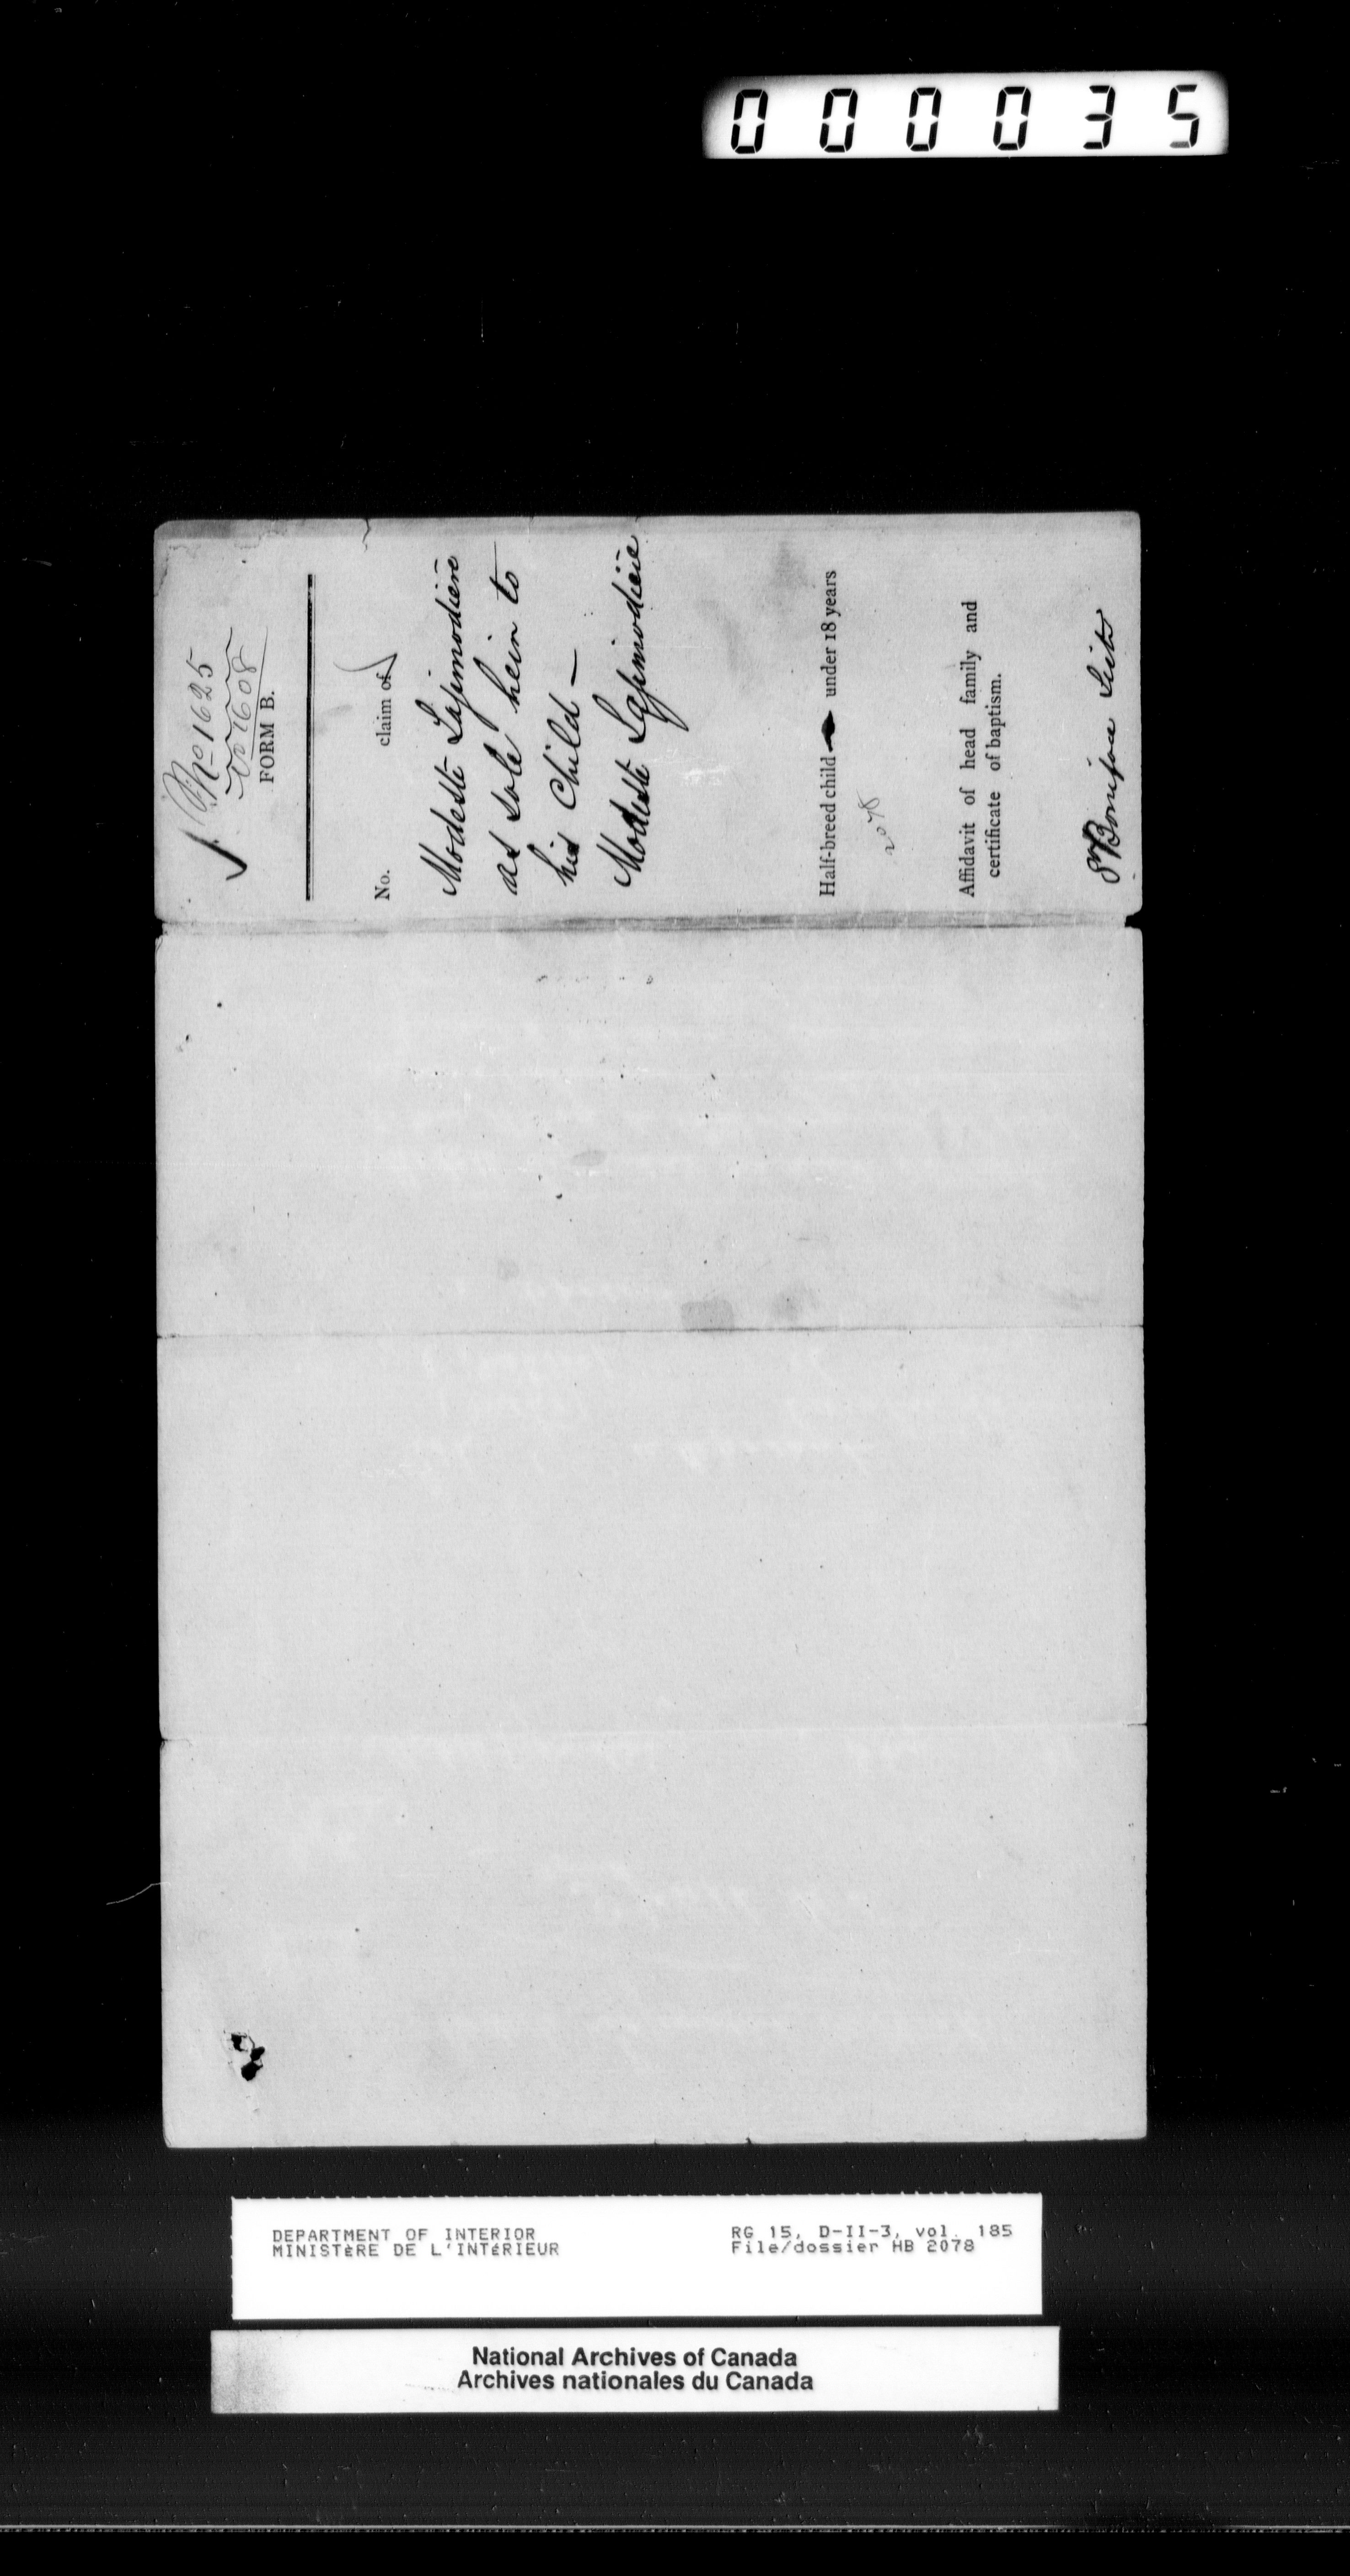 000035
No 1625
No 1608
FORM B.
No. claim of
Modeste Lajimodière
as sole heir to
his Child —
Modeste Lajimodière
Half-breed child under 18 years
2078
Affidavit of head family and
certificate of baptism.
St Boniface
DEPARTMENT OF INTERIOR
MINISTÈRE DE L'INTÉRIEUR
RG 15, D-II-3, vol. 185
File/dossier HB 2078
National Archives of Canada
Archives nationales du Canada